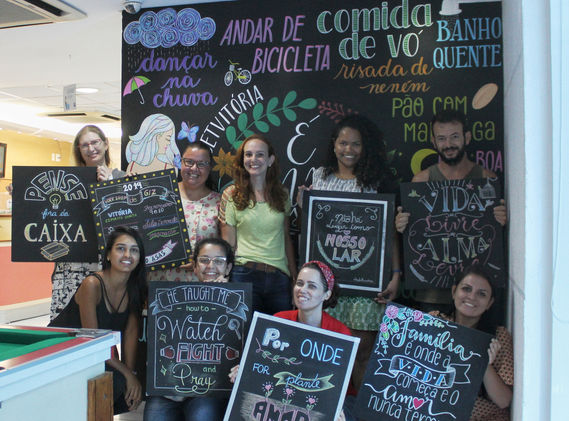 comida
de vó
ANDAR DE
BICICLETA
BANHO
QUENTE
dançar
na
chuva
risada de
neném
PÃO COM
VITÓRIA
É
BOA
PENSE
fora da
CAIXA
2019
VITÓRIA
Não há
lugar como
NOSSO
LAR
VIDA
Livre
ALMA
Leve
HE TAUGHT ME
how to
WATCH
FIGHT
and
Pray
Por
ONDE
FOR
plante
AMOR
Família
é onde a
VIDA
começa e o
amor
nunca termina